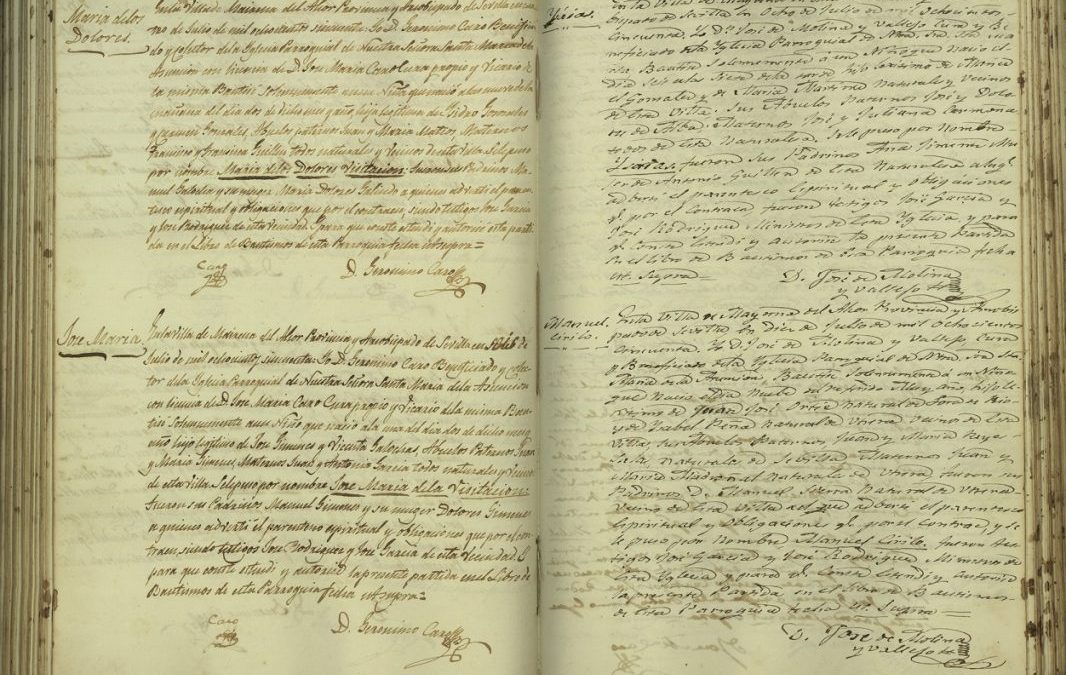 Maria delos
Dolores.
En la Villa de Mairena del Alcor Provincia y Arzobispado de Sevilla en
de Julio de mil ochocientos cincuenta: Yo D. Geronimo Caro Benefi
do y colector de la Iglesia Parroquial de Nuestra Señora Santa Maria de la
Asuncion con licencia de D. Jose Maria Caro Cura propio y Vicario de
la misma Bautizé solemnemente a una Niña que nació a las nueve de la
mañana del dia dos de dicho mes y año hija legitima de Pedro Gonzales
y Gonzales, Abuelos paternos Juan y Maria Mateos, Maternos
Francisco y Francisca Guillen todos naturales y vecinos de esta Villa Sele puso
por nombre Maria delos Dolores Visitacion: fueron sus Padrinos Ma
nuel y su muger Maria Dolores a quienes adverti el paren
tesco espiritual y obligaciones que por el contraen, siendo testigos Jose Garcia
y Jose Rodriguez de esta vecindad. Y para que conste estendí y autorizé esta parti
da en el Libro de Bautismos de esta Parroquia fecha ut supra=
Caro
D. Geronimo Caro
Jose Maria
En la Villa de Mairena del Alcor Provincia y Arzobispado de Sevilla en de
Julio de mil ochocientos cincuenta: Yo D. Geronimo Caro Beneficiado y colec
tor de la Iglesia Parroquial de Nuestra Señora Santa Maria de la Asuncion
con licencia de D. Jose Maria Caro Cura propio y Vicario de la misma Bau
tizé solemnemente a un Niño que nació a la una del dia dos de dicho mes y
año hijo legitimo de Jose Gimenes y Vicenta Abuelos Paternos Juan
y Maria Gimenes, Maternos Juan y Antonia Garcia todos naturales y vecinos
de esta Villa Sele puso por nombre Jose Maria dela Visitacion:
fueron sus Padrinos Manuel Gimenes y su muger Dolores Gimenes
a quienes adverti el parentesco espiritual y obligaciones que por el con
traen, siendo testigos Jose Rodriguez y Jose Garcia de esta Vecindad. Y
para que conste estendí y autorizé la presente partida en el Libro de
Bautismos de esta Parroquia fecha ut supra=
Caro
D. Geronimo Caro
En la Villa de
bispado de Sevilla en Ocho de Julio de mil ochocientos
cincuenta. Yo D. Jose de Molina y Vallejo Cura y Be
neficiado de esta Yglesia Parroquial de Ntra. Sra. Sta.
Bautizé Solemnemente à un Niño que nació el
dia seis à las siete de la tarde hijo legitimo de Manu
el Gonzales y de Maria Martina Naturales y Vecinos
de esta Villa. Sus Abuelos Paternos José y Dolo
res de Alba: Maternos José y Juliana
todos de esta Naturaleza. Sele puso por Nombre
fueron sus Padrinos Ana Jimenes Mu
ger de Antonio de esta Naturaleza a la q.
adverti el parentesco Espiritual y Obligaciones
q. por él Contrae fueron testigos José Garcia y
José Rodriguez Ministros de esta Yglesia y para
q. Conste Estendi y autorizé la presente Partida
en el Libro de Bautismos de esta Parroquia fecha
ut Supra=
D. Jose de Molina
y Vallejo
Manuel
Cirilo.
En la Villa de Mayrena del Alcor Provincia y Arzobis
pado de Sevilla en Diez de Julio de mil Ochocientos
Cincuenta. Yo D. José de Molina y Vallejo Cura
y Beneficiado de esta Yglesia Parroquial de Ntra. Sra. Sta.
Maria de la Asuncion, Bautizé Solemnemente a un Niño
que Nació el dia Nueve del referido Mes y año, hijo le
gitimo de Juan José Ortiz Natural de
y de Isabel Peña Natural de Utrera Vecinos de esta
Villa, sus Abuelos Paternos Juan y Maria
Naturales de Sevilla Maternos Juan y
Maria Naturales de Utrera fueron sus
Padrinos D. Manuel Natural de Utrera
Vecino de esta Villa al que adverti el parentesco
Espiritual y Obligaciones q. por él Contrae, y se
le puso por Nombre Manuel Cirilo, fueron tes
tigos José Garcia y José Rodriguez, Ministros de
esta Yglesia y para q. Conste Estendi y autorizé
la presente Partida en el Libro de Bautismos
de esta Parroquia fecha Ut Supra=
D. Jose de Molina
y Vallejo